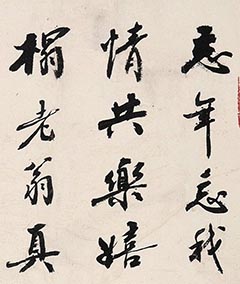 忘年忘我
情共樂嬉
榻老翁真